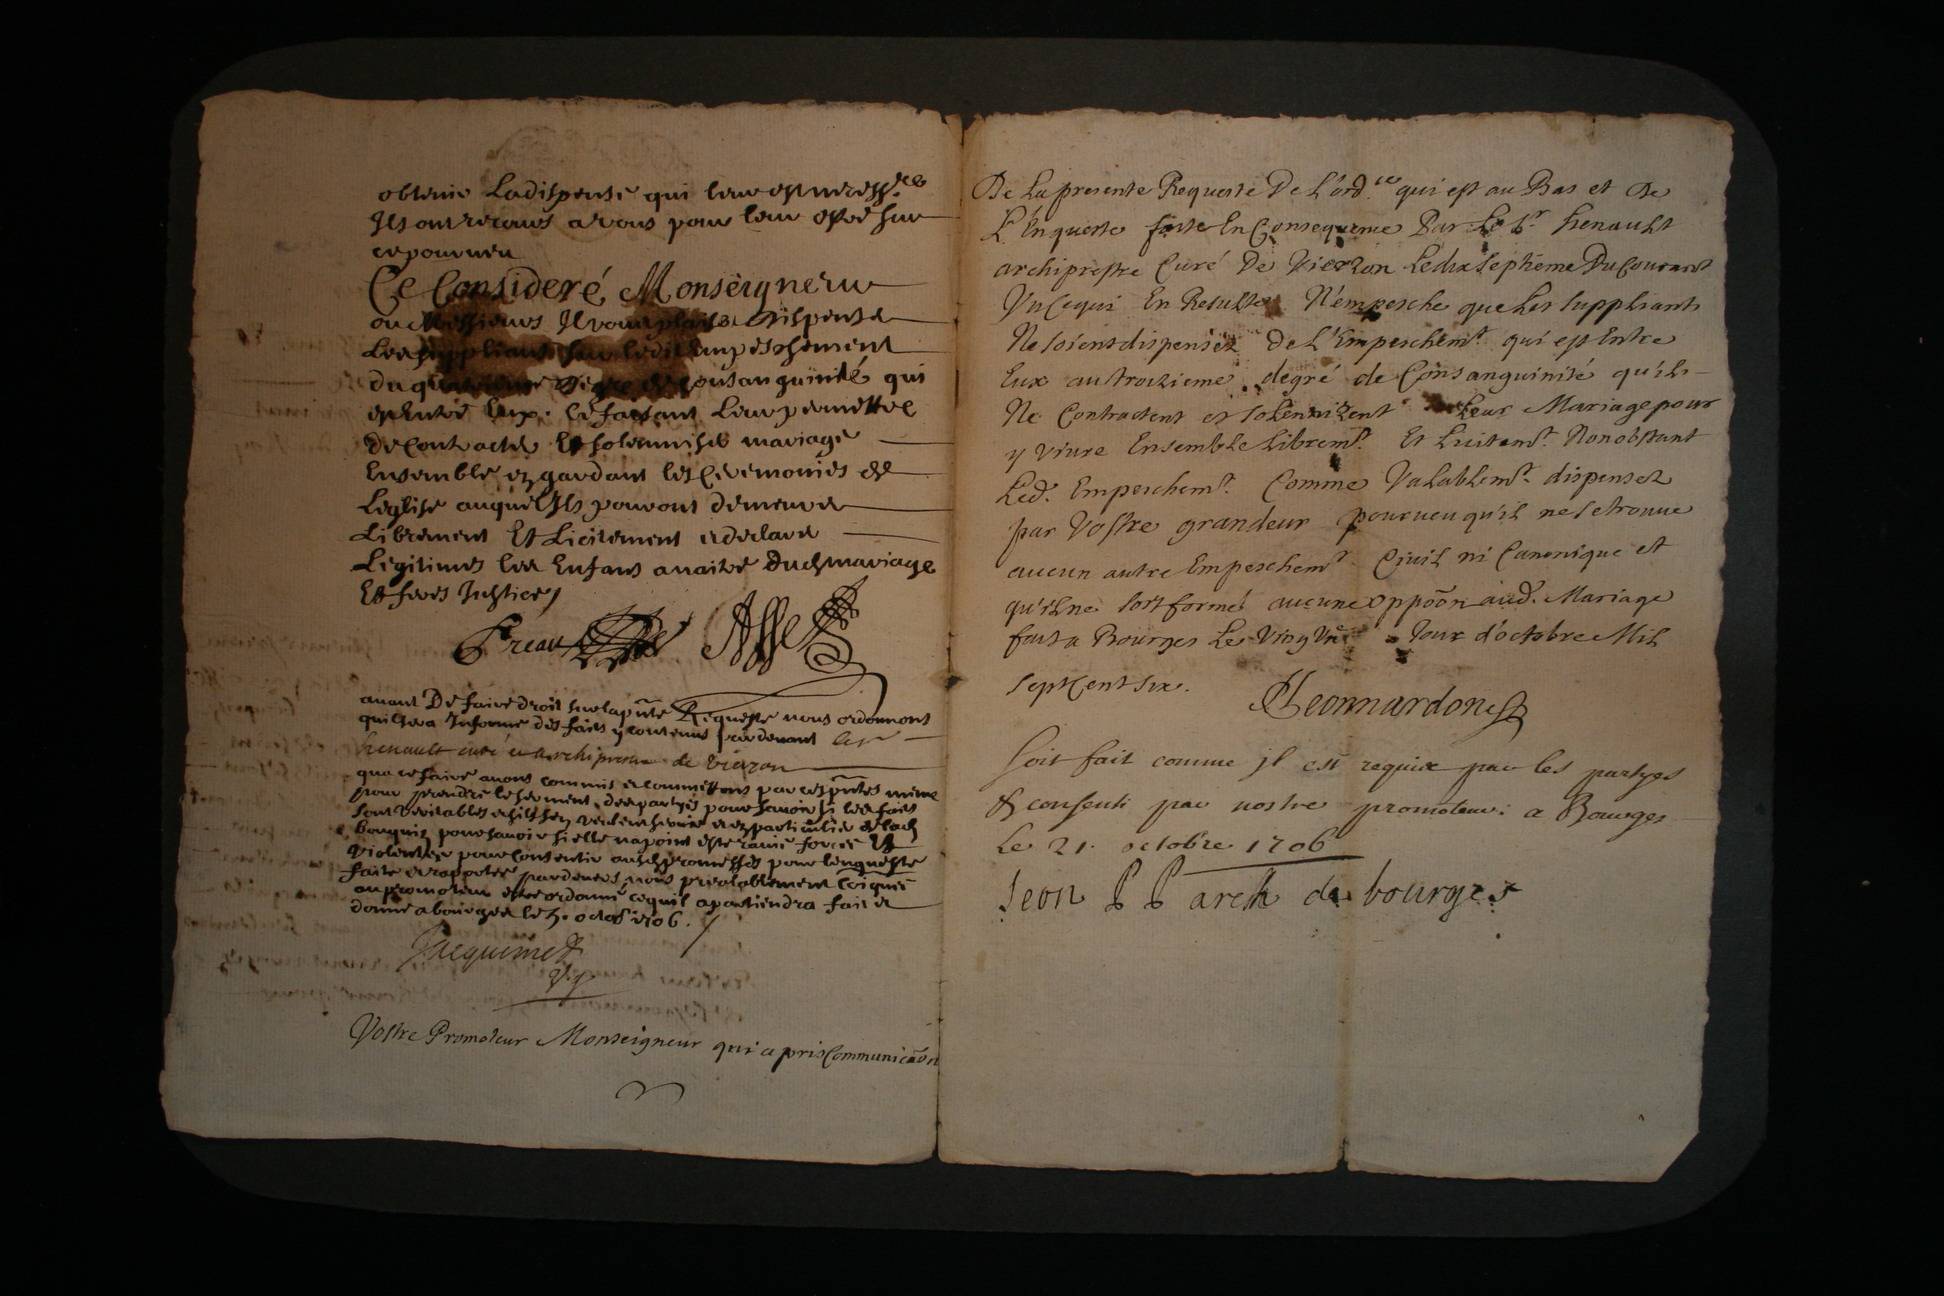 obtenir La dispense qui leur est necess.re
Ils ont recours a vous pour leur estre sur
ce pourveu
Ce Consideré Monseigneur
ou Messieurs Il vous plaise dispenser
Les suppliants sur ledit empeschement
du quatrieme degré de Consanguinité qui
est entre eux. ce faisant Leur permettre
de Contracter Et solemniser mariage
Ensemble en gardant les Ceremonies de
Leglise auquel Ils pouront demeurer
Librement Et Licitement et declarer
Legitimes les Enfans a naitre dud mariage
Et feres Justice /
avant De faire droit sur la pnte Requeste nous ordonnons
quil sera Informé des faits y contenus par devant le sr
henault curé et archiprestre de vierzon
que ce faire avons commis et commettons par ces pntes mesme
pour prendre le serment des partyes pour scavoir si les faits
sont veritables et en particulier de lad
pour scavoir si elle na point esté ravie forcée Et
violentée pour consentir aud promesses pour lenqueste
faite et raportée par devers nous prealablement
au promoteur estre ordonné ce quil apartiendra fait et
donné a bourges le octob 1706. /
Jacquemet
Vostre Promoteur Monseigneur qui a pris Communicaõn
De La presente Requeste De L'ord.ce qui est au Bas et De
L'Enqueste faite En Consequence Par Le Sr. henault
archiprestre Curé De Vierzon Le dix septieme Du Courant
Vu Ce qui En Resulte N'empesche que Les suppliants
Ne soient dispensez De L'Empeschem.t qui est Entre
Eux au troizieme degré de Consanguinité qu'ils
Ne Contractent et solennizent Leur Mariage pour
y vivre Ensemble Librem.t Et Licitem.t Nonobstant
Led. Empeschem.t Comme Valablem.t dispensez
par Vostre grandeur pourveu qu'il ne se trouve
aucun autre Empeschem.t Civil ni Canonique et
qu'il ne soit formé aucune oppõõn aud. Mariage
fait a Bourges Le Vingt Un Jour d'octobre Mil
sept Cent six.
Leonnardon
Soit fait comme il est requis par les partyes
& consenti par nostre promoteur: a Bourges
Le 21. octobre 1706
Leon P P arch de bourges